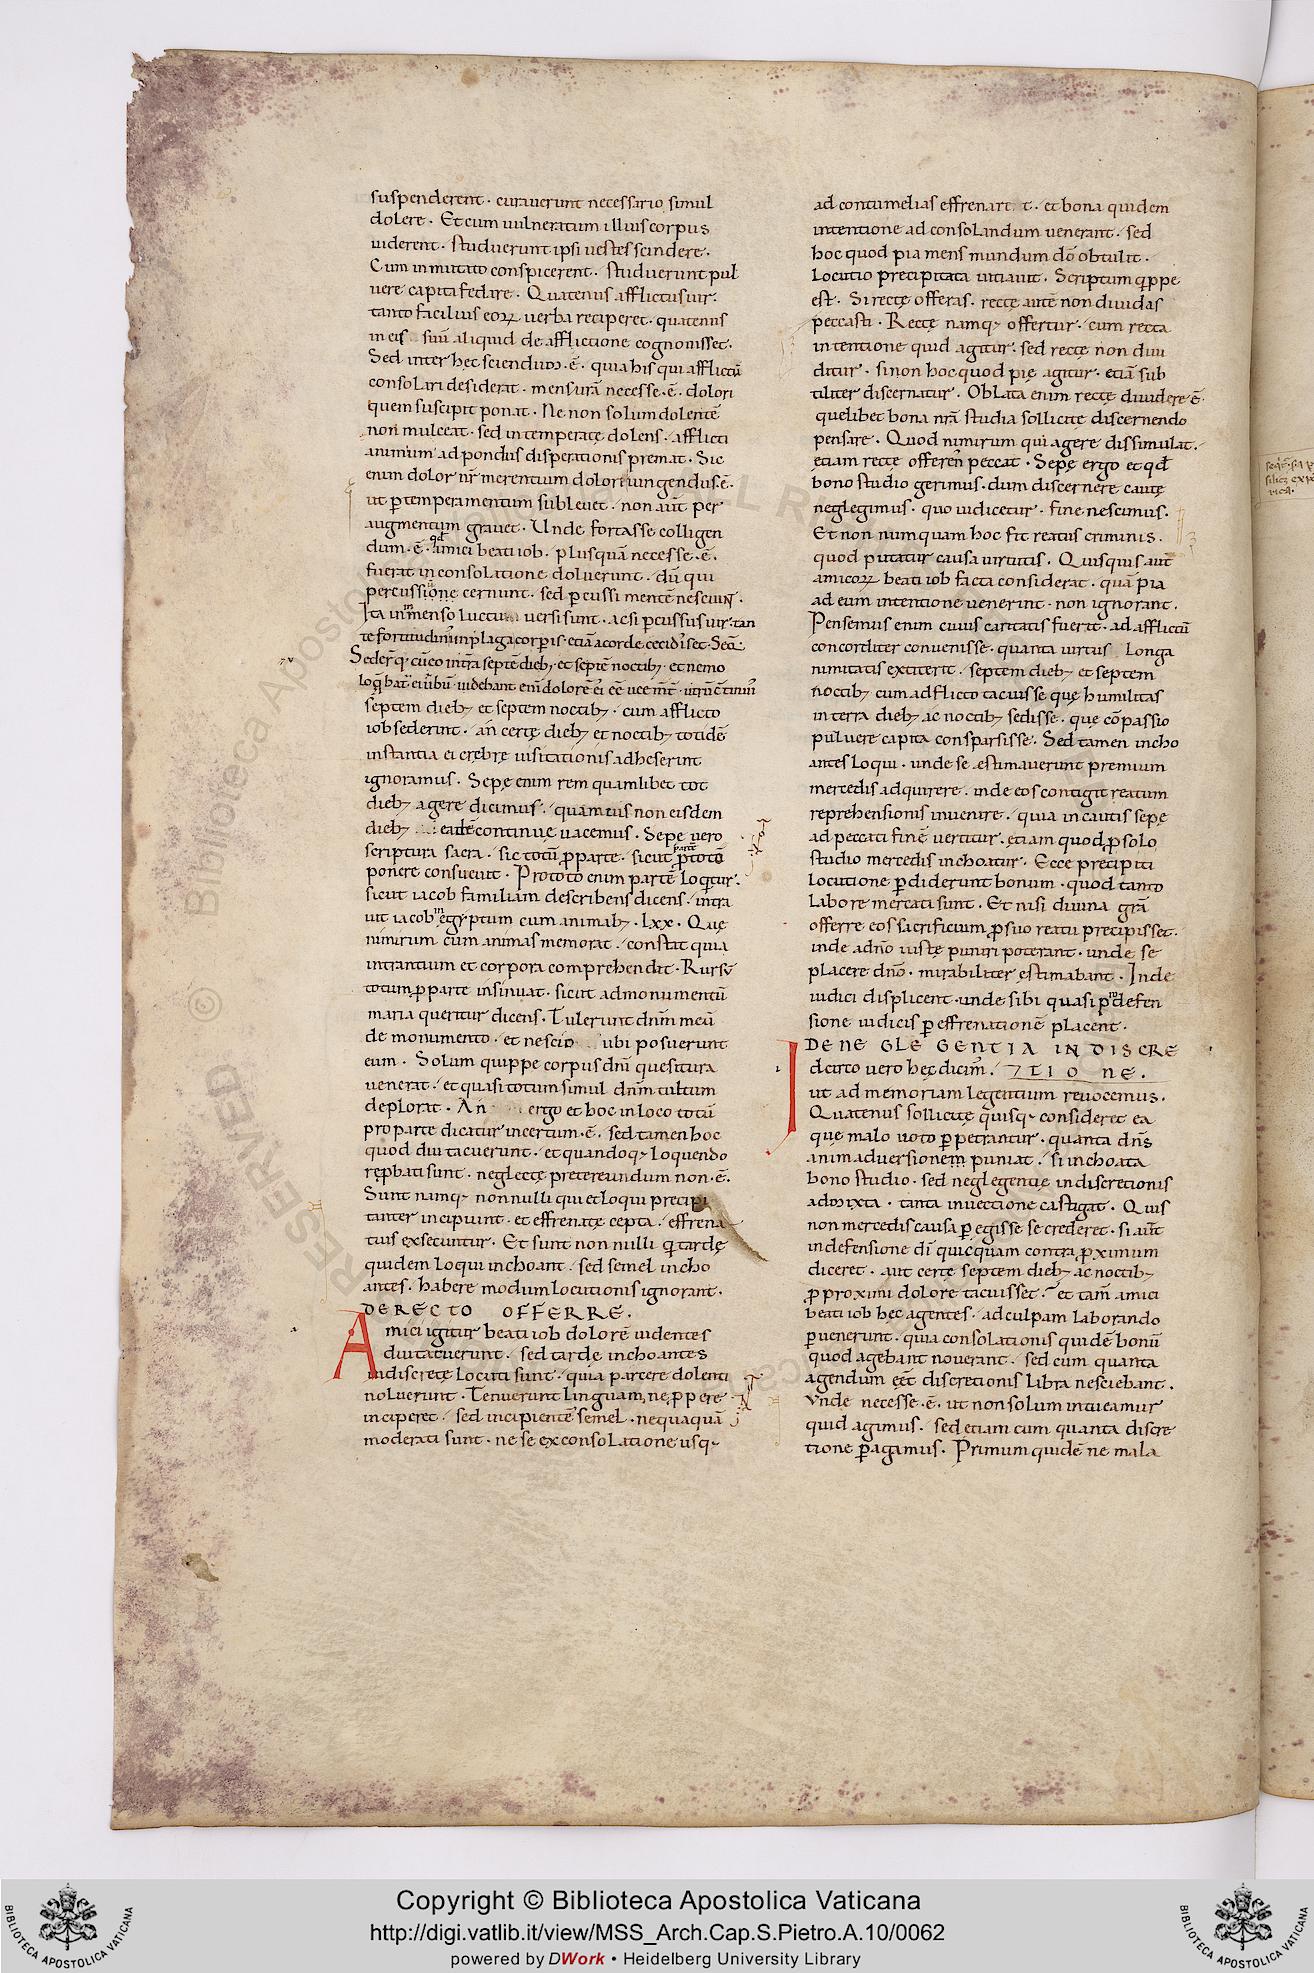 suspenderent · curauerunt necessario simul
dolere · Et cum uulneratum illius corpus
uiderent · studuerunt ipsi uestes scindere ·
Cum inmutato conspicerent · studuerunt pul
uere capita fedare · Quatenus afflictus uir ·
tanto facilius eoꝝ uerba reciperet · quatenus
in eis suū aliquid de afflictione cognouisset ·
Sed inter hec sciendum · ē · quia his qui afflictū
consolari desiderat · mensurā necesse · ē · dolori
quem suscipit ponat · Ne non solum dolentē
non mulceat · sed intemperatę dolens · afflicti
animum ad pondus disperationis premat · Sic
enim dolor nr̄ merentium dolori iungendus · ē ·
ut ꝑ temperamentum subleuet · non aūt per
augmentum grauet · Unde fortasse colligen
dum · ē · qđ amici beati iob · plusquā necesse · ē ·
fuerat in consolatione doluerunt · dū qui
percussione cernunt · sed ꝑcussi mentē nesciunt ·
Ita inmenso luctum uersi sunt · acsi ꝑcussus uir · tan
te fortitudinis in plaga corꝑis · etiā a corde cecidisset · Seq̄
Sederūtq · cū eo in trā septē dieb; et septē noctib; · et nemo
loq̄bat̄ ei uerbū · uidebant enī dolorē eē ueementē · utrū cū
septem dieb; et septem noctib; · cum afflicto
iob sederint · an certę dieb; et noctib; totidē
instantia ei crebrę uisitationis adheserint
ignoramus · Sepę enim rem quamlibet tot
dieb; agere dicimus · quamuis non eisdem
dieb; eadē continuę uacemus · Sepę uero
scriptura sacra · sic totū ꝓ parte · sicut parte ꝓ toto
ponere consueuit · Pro toto enim partē loquitur ·
sicut iacob familiam describens dicens · intra
uit iacob in egyptum cum animab; · lxx · Quę
nimirum cum animas memorat · constat quia
intrantium et corpora comprehendit · Rursū
totum ꝓ parte insinuat · sicut ad monumentū
maria queritur dicens · Tulerunt dn̄m meū
de monumento · et nescio ubi posuerunt
eum · Solum quippe corpus dn̄i quesitura
uenerat · et quasi totum simul dn̄m tultum
deplorat · An ergo et hoc in loco totū
pro parte dicatur incertum · ē · sed tamen hoc
quod diu tacuerunt · et quandoq; loquendo
reꝓbati sunt · neglectę pretereundum non · ē ·
Sunt namq; nonnulli qui et loqui precipi
tanter incipiunt · et effrenatę cepta · effrena
tius exsecuntur · Et sunt non nulli qui tardę
quidem loqui inchoant · sed semel incho
antes · habere modum locutionis ignorant ·
DE RECTO OFFERRE ·
Amici igitur beati iob dolorē uidentes
diu tacuerunt · sed tardę inchoantes
indiscretę locuti sunt · quia parcere dolenti
noluerunt · Tenuerunt linguam, ne ꝓpere
inciperet · sed incipientē semel · nequaquā
moderati sunt · ne se ex consolatione usq;
ad contumelias effrenaret · et bona quidem
intentione ad consolandum uenerant · sed
hoc quod pia mens mundum dō obtulit ·
locutio precipitata uitiauit · Scriptum quippe
est · Si rectę offeras · rectę autē non diuidas
peccasti · Rectę namq; offertur · cum recta
intentione quid agitur · sed rectę non diui
ditur · si non hoc quod pię agitur · etiā sub
tiliter discernatur · Oblata enim rectę diuidere ē ·
quelibet bona nr̄a studia sollicitę discernendo
pensare · Quod nimirum qui agere dissimulat ·
etiam rectę offerens peccat · Sepę ergo et qđ
bono studio gerimus · dum discernere cautę
neglegimus · quo iudicetur · fine nescimus ·
Et non numquam hoc fit reatus criminis ·
quod putatur causa uirtutis · Quisquis aut̄
amicoꝝ beati iob facta considerat · quā pia
ad eum intentione uenerint · non ignorant ·
Pensemus enim cuius caritatis fuerit · ad afflictū
concorditer conuenisse · quanta uirtus longa
nimitatis extiterit · septem dieb; et septem
noctib; cum adflicto tacuisse quę humilitas
in terra dieb; ac noctib; sedisse · que cōpassio
puluere capita consparsisse · Sed tamen incho
antes loqui · unde se estimauerunt premium
mercedis adquirere · inde eos contigit reatum
reprehensionis inuenire · quia incautis sepę
ad peccati finē uertitur · etiam quod ꝓ solo
studio mercedis inchoatur · Ecce precipiti
locutione ꝑdiderunt bonum · quod tanto
labore mercati sunt · Et nisi diuina gr̄a
offerre eos sacrificium ꝓ suo reatu precipisset ·
inde a dn̄o iustę puniri poterant · unde se
placere dn̄o · mirabiliter estimabant · Inde
iudici displicent · unde sibi quasi in defen
sione iudicis ꝑ effrenationē placent ·
DE NEGLEGENTIA INDISCRE
Idcirco uero hęc dicim̄ · TIONE ·
ut ad memoriam legentium reuocemus ·
Quatenus sollicitę quisq; consideret ea
que malo uoto ꝑpetrantur · quanta dn̄s
animaduersionem puniat · si inchoata
bono studio · sed neglegentię indiscretionis
admixta · tanta inuectione castigat · Quis
non mercedis causa ꝑegisse se crederet · si aūt
in defensione dī quicquam contra ꝓximum
diceret · aut certe septem dieb; ac noctib;
ꝓ proximi dolore tacuisset · et tam̄ amici
beati iob hec agentes · ad culpam laborando
ꝑuenerunt · quia consolationis quidē bonū
quod agebant nouerant · sed cum quanta
agendum eēt discretionis libra nesciebant ·
Unde necesse · ē · ut non solum intueamur
quid agimus · sed etiam cum quanta discre
tione ꝑagamus · Primum quidē ne mala
Copyright © Biblioteca Apostolica Vaticana
http://digi.vatlib.it/view/MSS_Arch.Cap.S.Pietro.A.10/0062
powered by DWork • Heidelberg University Library
BIBLIOTECA APOSTOLICA VATICANA
BIBLIOTECA APOSTOLICA VATICANA